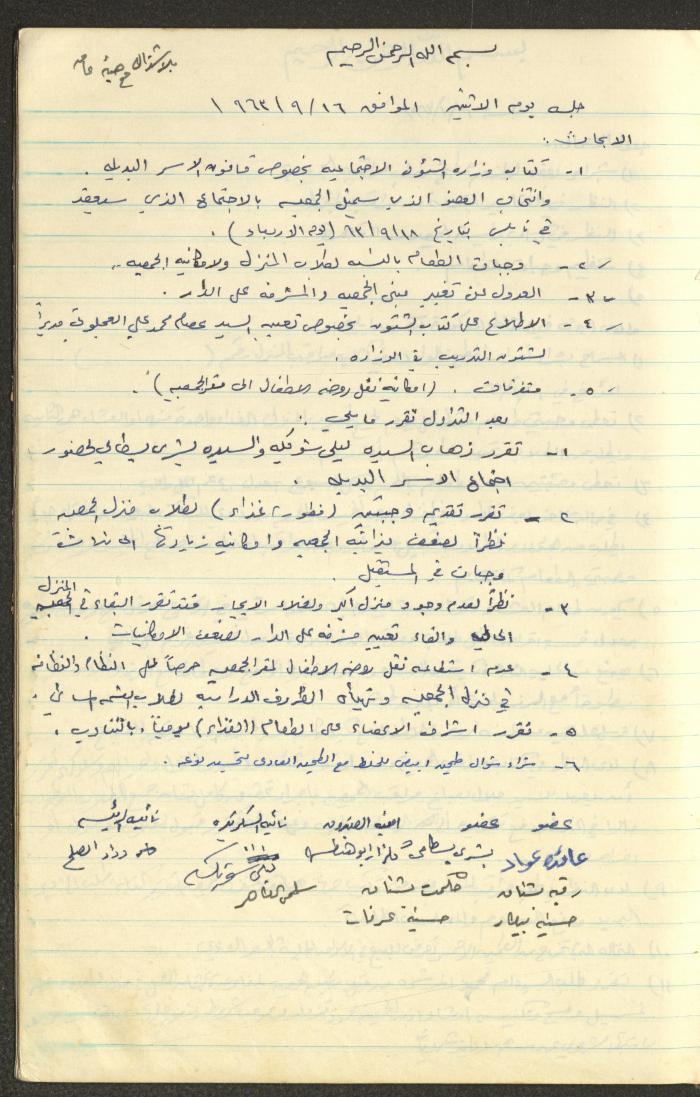 بسم الله الرحمن الرحيم
جلسة يوم الاثنين الموافق ١٦/٩/١٩٦٣
الابحاث :
١- كتاب وزاره الشئون الاجتماعيه بخصوص قانون الاسر البديله .
وانتخاب العضو الذي سيمثل الجمعيه بالاجتماع الذي سيعقد
في نابلس بتاريخ ١٨/٩/٦٣ (يوم الاربعاء) .
٢- وجبات الطعام بالنسبه لطلاب المنزل ولامكانيه الجمعيه .
٣- العدول عن تغيير مبنى الجمعيه والمشرفه على الدار .
٤- الاطلاع على كتاب الشئون بخصوص تعيين السيد عصام محمد علي العجلوني مديراً
لشئون التدريب في الوزاره .
٥- متفرقات . (امكانية نقل روضه الاطفال الى مقر الجمعيه) .
بعد التداول تقرر ما يلي :
١- تقرر ذهاب السيده ليلى شوكه والسيده بشرى بسطامي لحضور
اجتماع الاسر البديله .
٢- تقرر تقديم وجبتين (فطور، غذاء) لطلاب منزل الجمعيه
نظراً لضعف ميزانية الجمعيه وامكانيه زيادتها الى ثلاثة
وجبات في المستقبل .
٣- نظراً لعدم وجود منزل اكبر ولغلاء الايجار فقد تقرر البقاء في المنزل
الحالي والغاء تعيين مشرفه على الدار لضعف الامكانيات .
٤- عدم استطاعه نقل روضه الاطفال لمقر الجمعيه حرصاً على النظام والنظافه
في منزل الجمعيه وتهيأة الظروف الدراسيه لطلاب القسم المسائي .
٥- تقرر اشراف الاعضاء على الطعام (الغذاء) يومياً، بالتناوب .
٦- شراء شوال طحين ابيض للخلط مع الطحين العادي لتحسين نوعه .
عضو عضو امينه الصندوق نائبه السكرتيره نائبه الرئيسه
عائده عواد بشرى بسطامي
رقيه بشناق حكمت بشناق سلمى الناصر
حسنيه عرفات